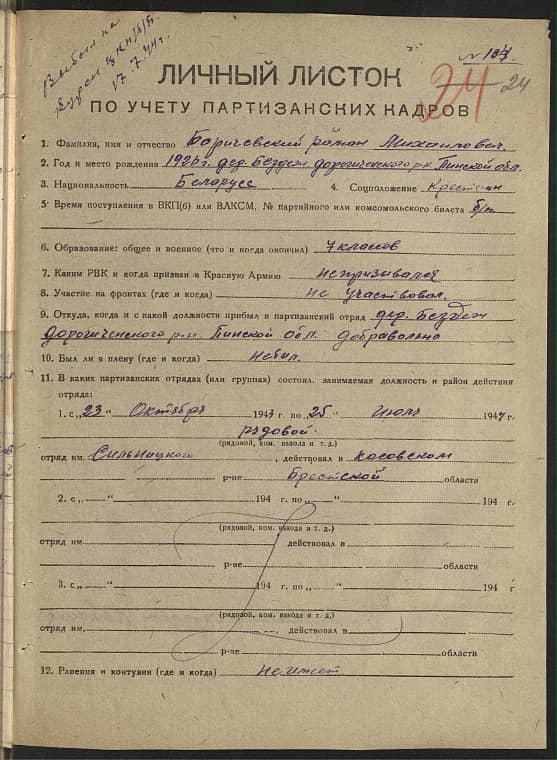 Выбыл на
курсы ЦК КП(б)Б
17.7.44 г.
№ 104
24 24
ЛИЧНЫЙ ЛИСТОК
ПО УЧЕТУ ПАРТИЗАНСКИХ КАДРОВ
1. Фамилия, имя и отчество Баричевский роман Михаилович.
2. Год и место рождения 1926 г. дер. Бездеж дорогиченского р-н. Пинской обл.
3. Национальность Беларусс 4. Соцположение Крестян
5. Время поступления в ВКП(б) или ВЛКСМ, № партийного или комсомольского билета б/п
6. Образование: общее и военное (что и когда окончил) 7 класов
7. Каким РВК и когда призван в Красную Армию непризывался
8. Участие на фронтах (где и когда) не участвовал.
9. Откуда, когда и с какой должности прибыл в партизанский отряд дер. Бездеж
дорогиченского р-н. Пинской обл. добравольно
10. Был ли в плену (где и когда) небыл.
11. В каких партизанских отрядах (или группах) состоял, занимаемая должность и район действия
отряда:
1. с „23" Октября 1943 г. по „25" Июля 1944 г.
рядовой.
(рядовой, ком. взвода и т. д.)
отряд им. Сильницкого, действовал в Косовском
р-не Брестской области
2. с „ — " 194 г. по „ — " 194 г.
(рядовой, ком. взвода и т. д.)
отряд им. действовал в
р-не области
3. с „ — " 194 г. по „ — " 194 г
(рядовой, ком. взвода и т. д.)
отряд им. действовал в
р-не области
12. Ранения и контузии (где и когда) неимеет